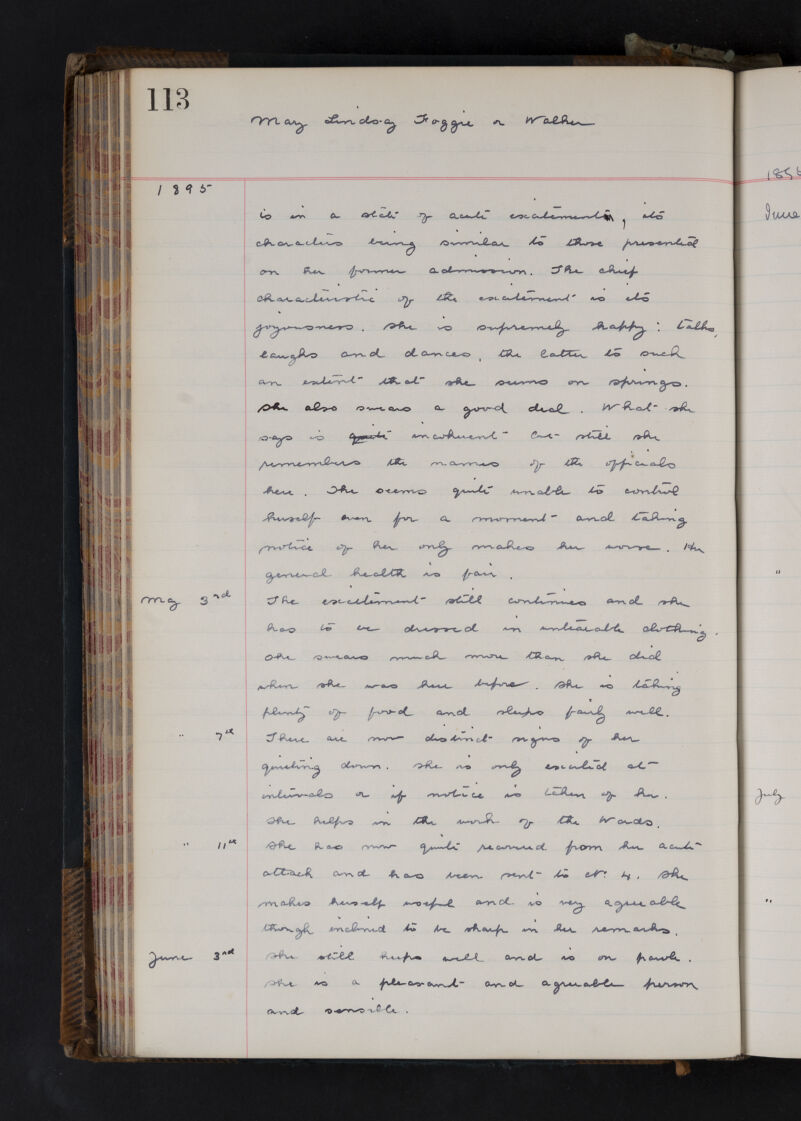 113
May Lindsay Foggie or Walker
1895
is in a state of acute excitement, its
characters being similar to those presented
on her former admission. The chief
characteristic of the excitement is its
joyousness. She is supremely happy: talks,
laughs and dances, the latter to such
an extent that she seems on springs.
She also swears a good deal. What she
says is quite incoherent but still she
remembers the names of the officials
here. She seems quite unable to control
herself even for a moment and taking
notice of her only makes her worse. Her
general health is fair.
May 3rd The excitement still continues and she
has to be dressed in untearable clothing.
She swears much more than she did
when she was here before. She is taking
plenty of food and sleeps fairly well.
" 7th There are now distinct signs of her
quieting down. She is only excited at
intervals or if notice is taken of her.
She helps in the work of the Wards.
" 11th She has now quite recovered from her acute
attack and has been sent to No. 4. She
makes herself useful and is very agreeable
though inclined to be sharp in her remarks.
June 3rd She still keeps well and is on parole.
She is a pleasant and agreeable person
and sensible.
June
"
July
"